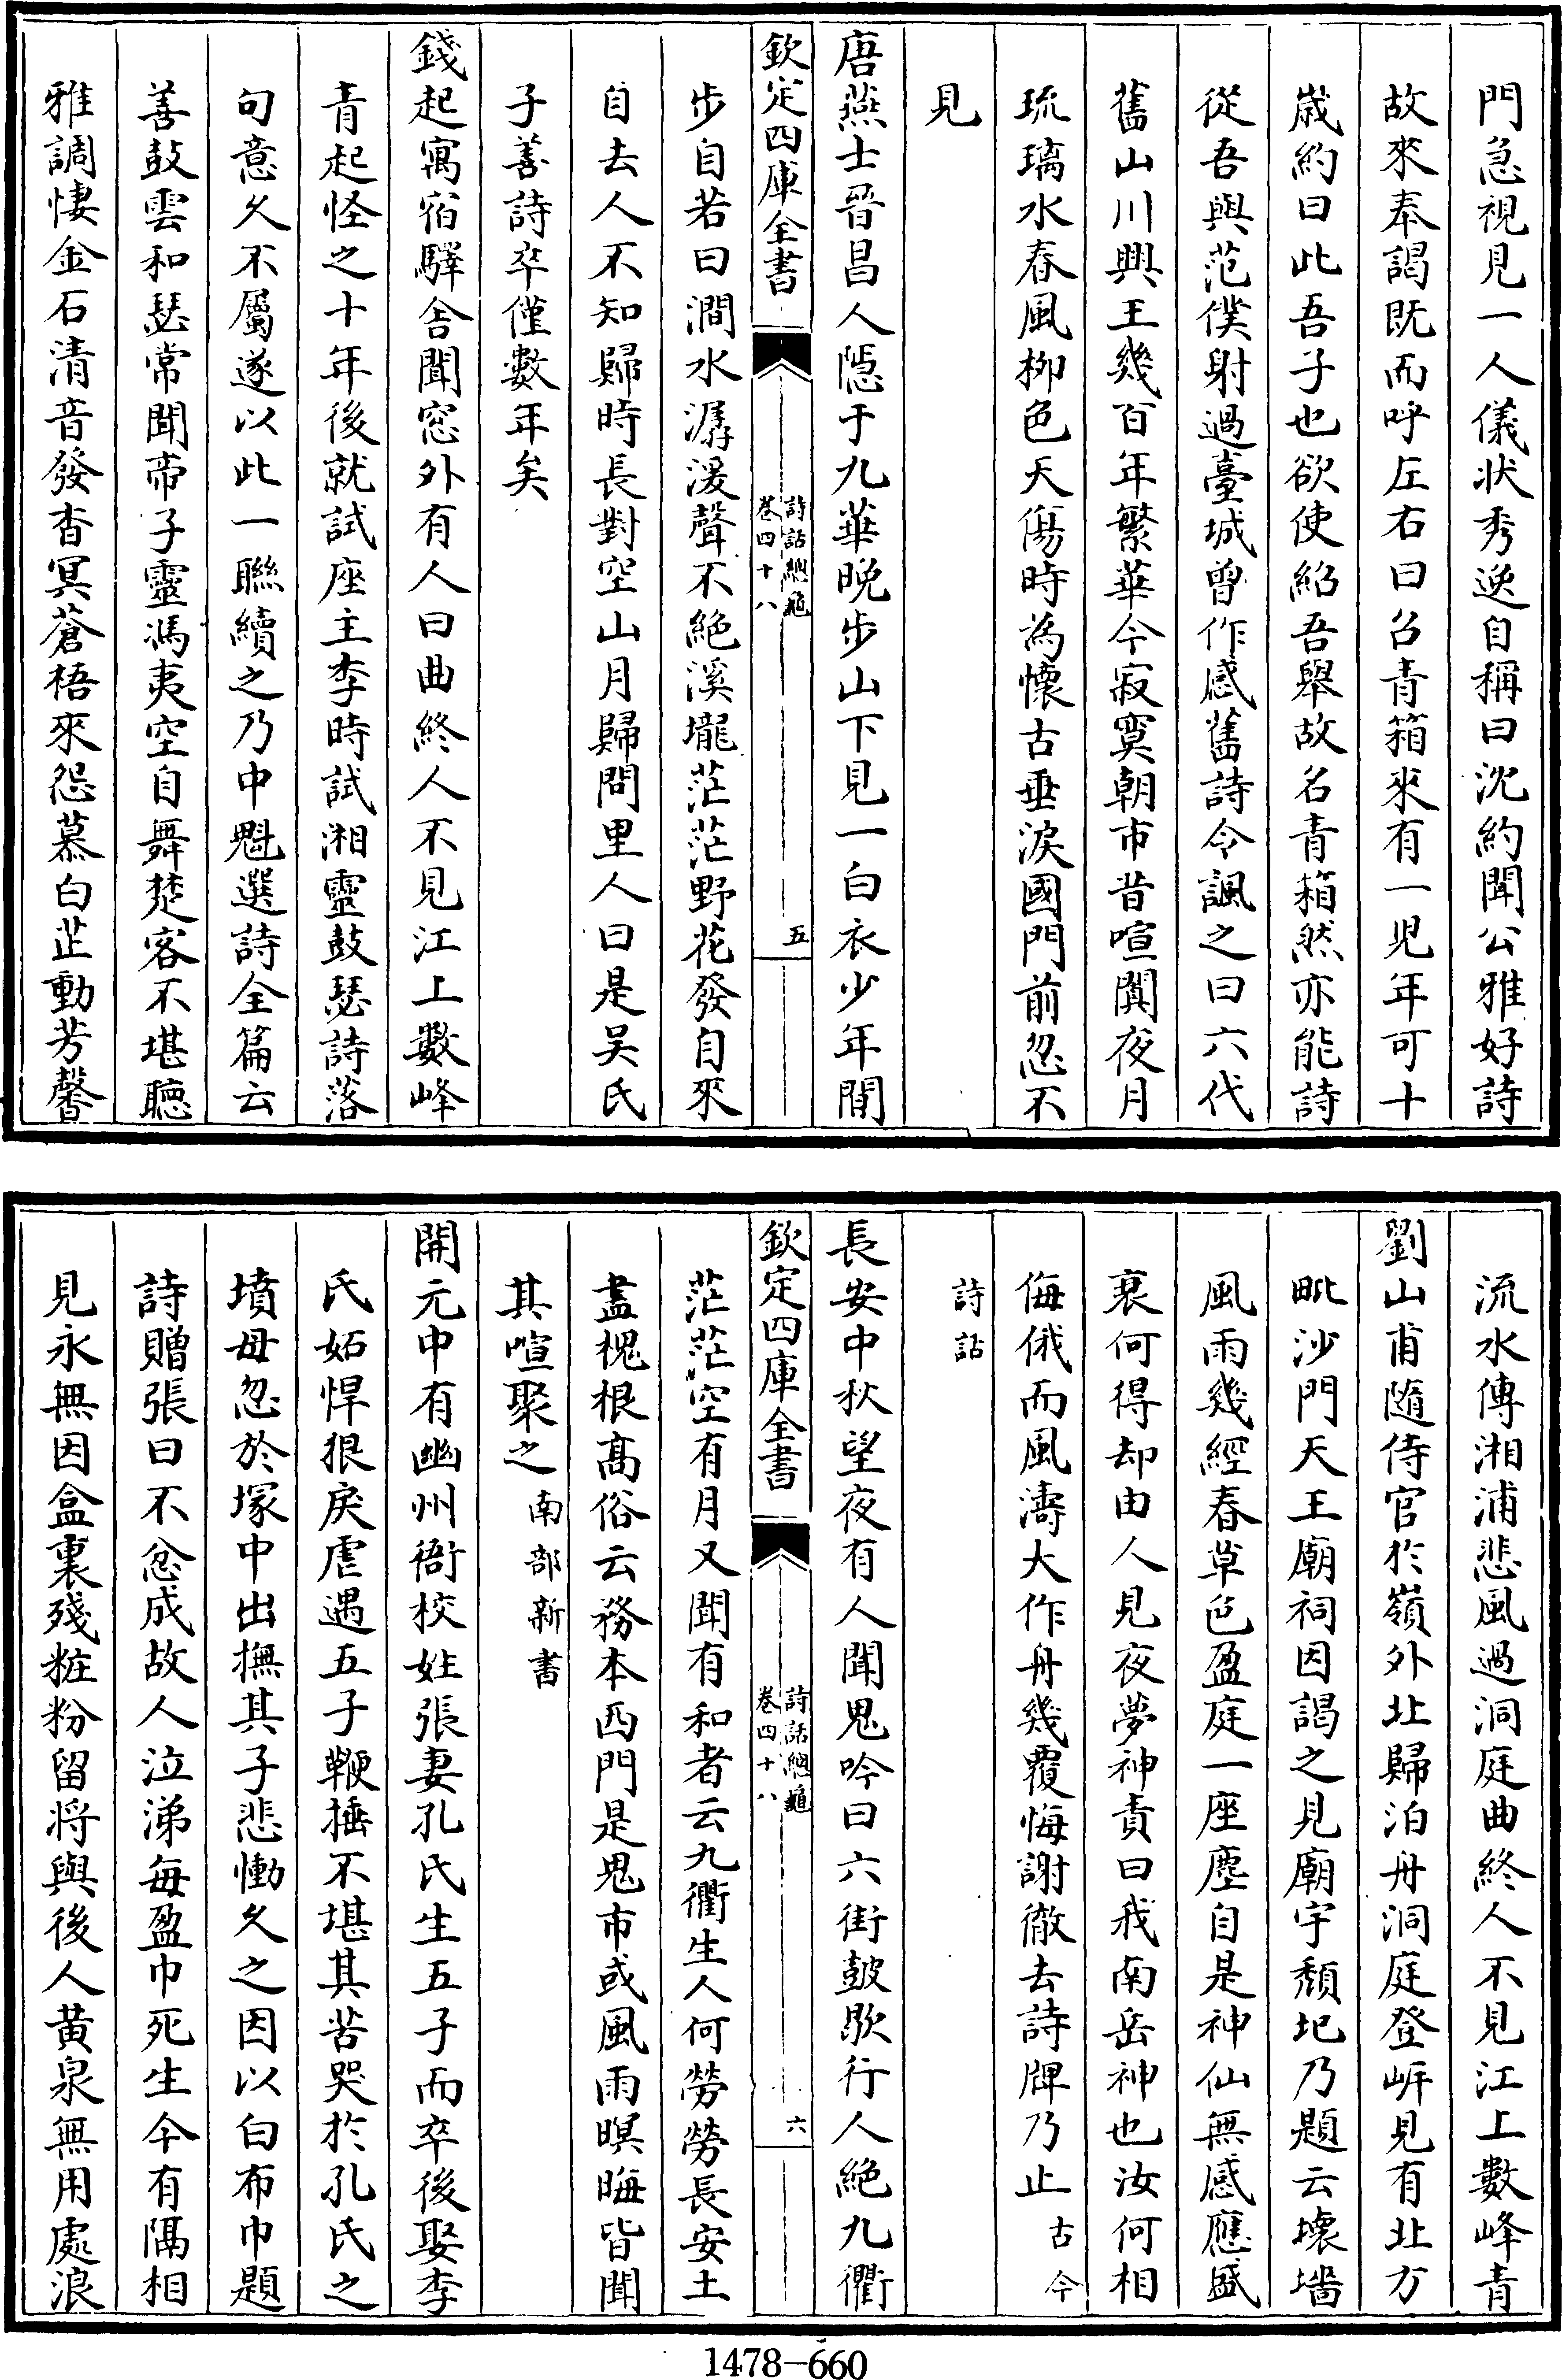 門急視見一人儀狀秀逸自稱曰沈約聞公雅好詩
故來奉謁既而呼左右曰召青箱來有一児年可十
歲約曰此吾子也欲使紹吾舉故名青箱然亦能詩
從吾與范僕射過臺城曾作感舊詩令諷之曰六代
舊山川興王幾百年繁華今寂寞朝市昔喧闐夜月
琉璃水春風栁色天傷時為懷古垂淚國門前忽不
見
唐燕士晉昌人隱于九華晚步山下見一白衣少年閒
欽定四庫全書
詩話總龜
卷四十八
五
步自若曰澗水潺湲聲不絕溪壠茫茫野花發自來
自去人不知歸時長對空山月歸問里人曰是吳氏
子善詩卒僅數年矣
錢起寓宿驛舍聞窓外有人曰曲終人不見江上數峰
青起怪之十年後就試座主李時試湘靈鼓瑟詩落
句意久不屬遂以此一聯續之乃中魁選詩全篇云
善鼓雲和瑟常聞帝子靈馮夷空自舞楚客不堪聽
雅調悽金石清音發杳冥蒼梧來怨慕白芷動芳馨
流水傳湘浦悲風過洞庭曲終人不見江上數峰青
劉山甫隨侍官於嶺外北歸泊舟洞庭登岍見有北方
毗沙門天王廟祠因謁之見廟宇頽圯乃題云壞墻
風雨幾經春草色盈庭一座塵自是神仙無感應盛
衰何得却由人見夜夢神責曰我南岳神也汝何相
侮俄而風濤大作舟幾覆悔謝徹去詩牌乃止古今
詩話
長安中秋望夜有人聞鬼吟曰六街鼓歇行人絶九衢
欽定四庫全書
詩話總龜
卷四十八
六
茫茫空有月又聞有和者云九衢生人何勞勞長安土
盡槐根髙俗云務本西門是鬼市或風雨暝晦皆聞
其喧聚之南部新書
開元中有幽州衙校姓張妻孔氏生五子而卒後娶李
氏妬悍狠戾虐遇五子鞭捶不堪其苦哭於孔氏之
墳母忽於塚中出撫其子悲慟久之因以白布巾題
詩贈張曰不忿成故人泣涕每盈巾死生今有隔相
見永無因盒裏殘粧粉留将與後人黃泉無用處浪
1478-660